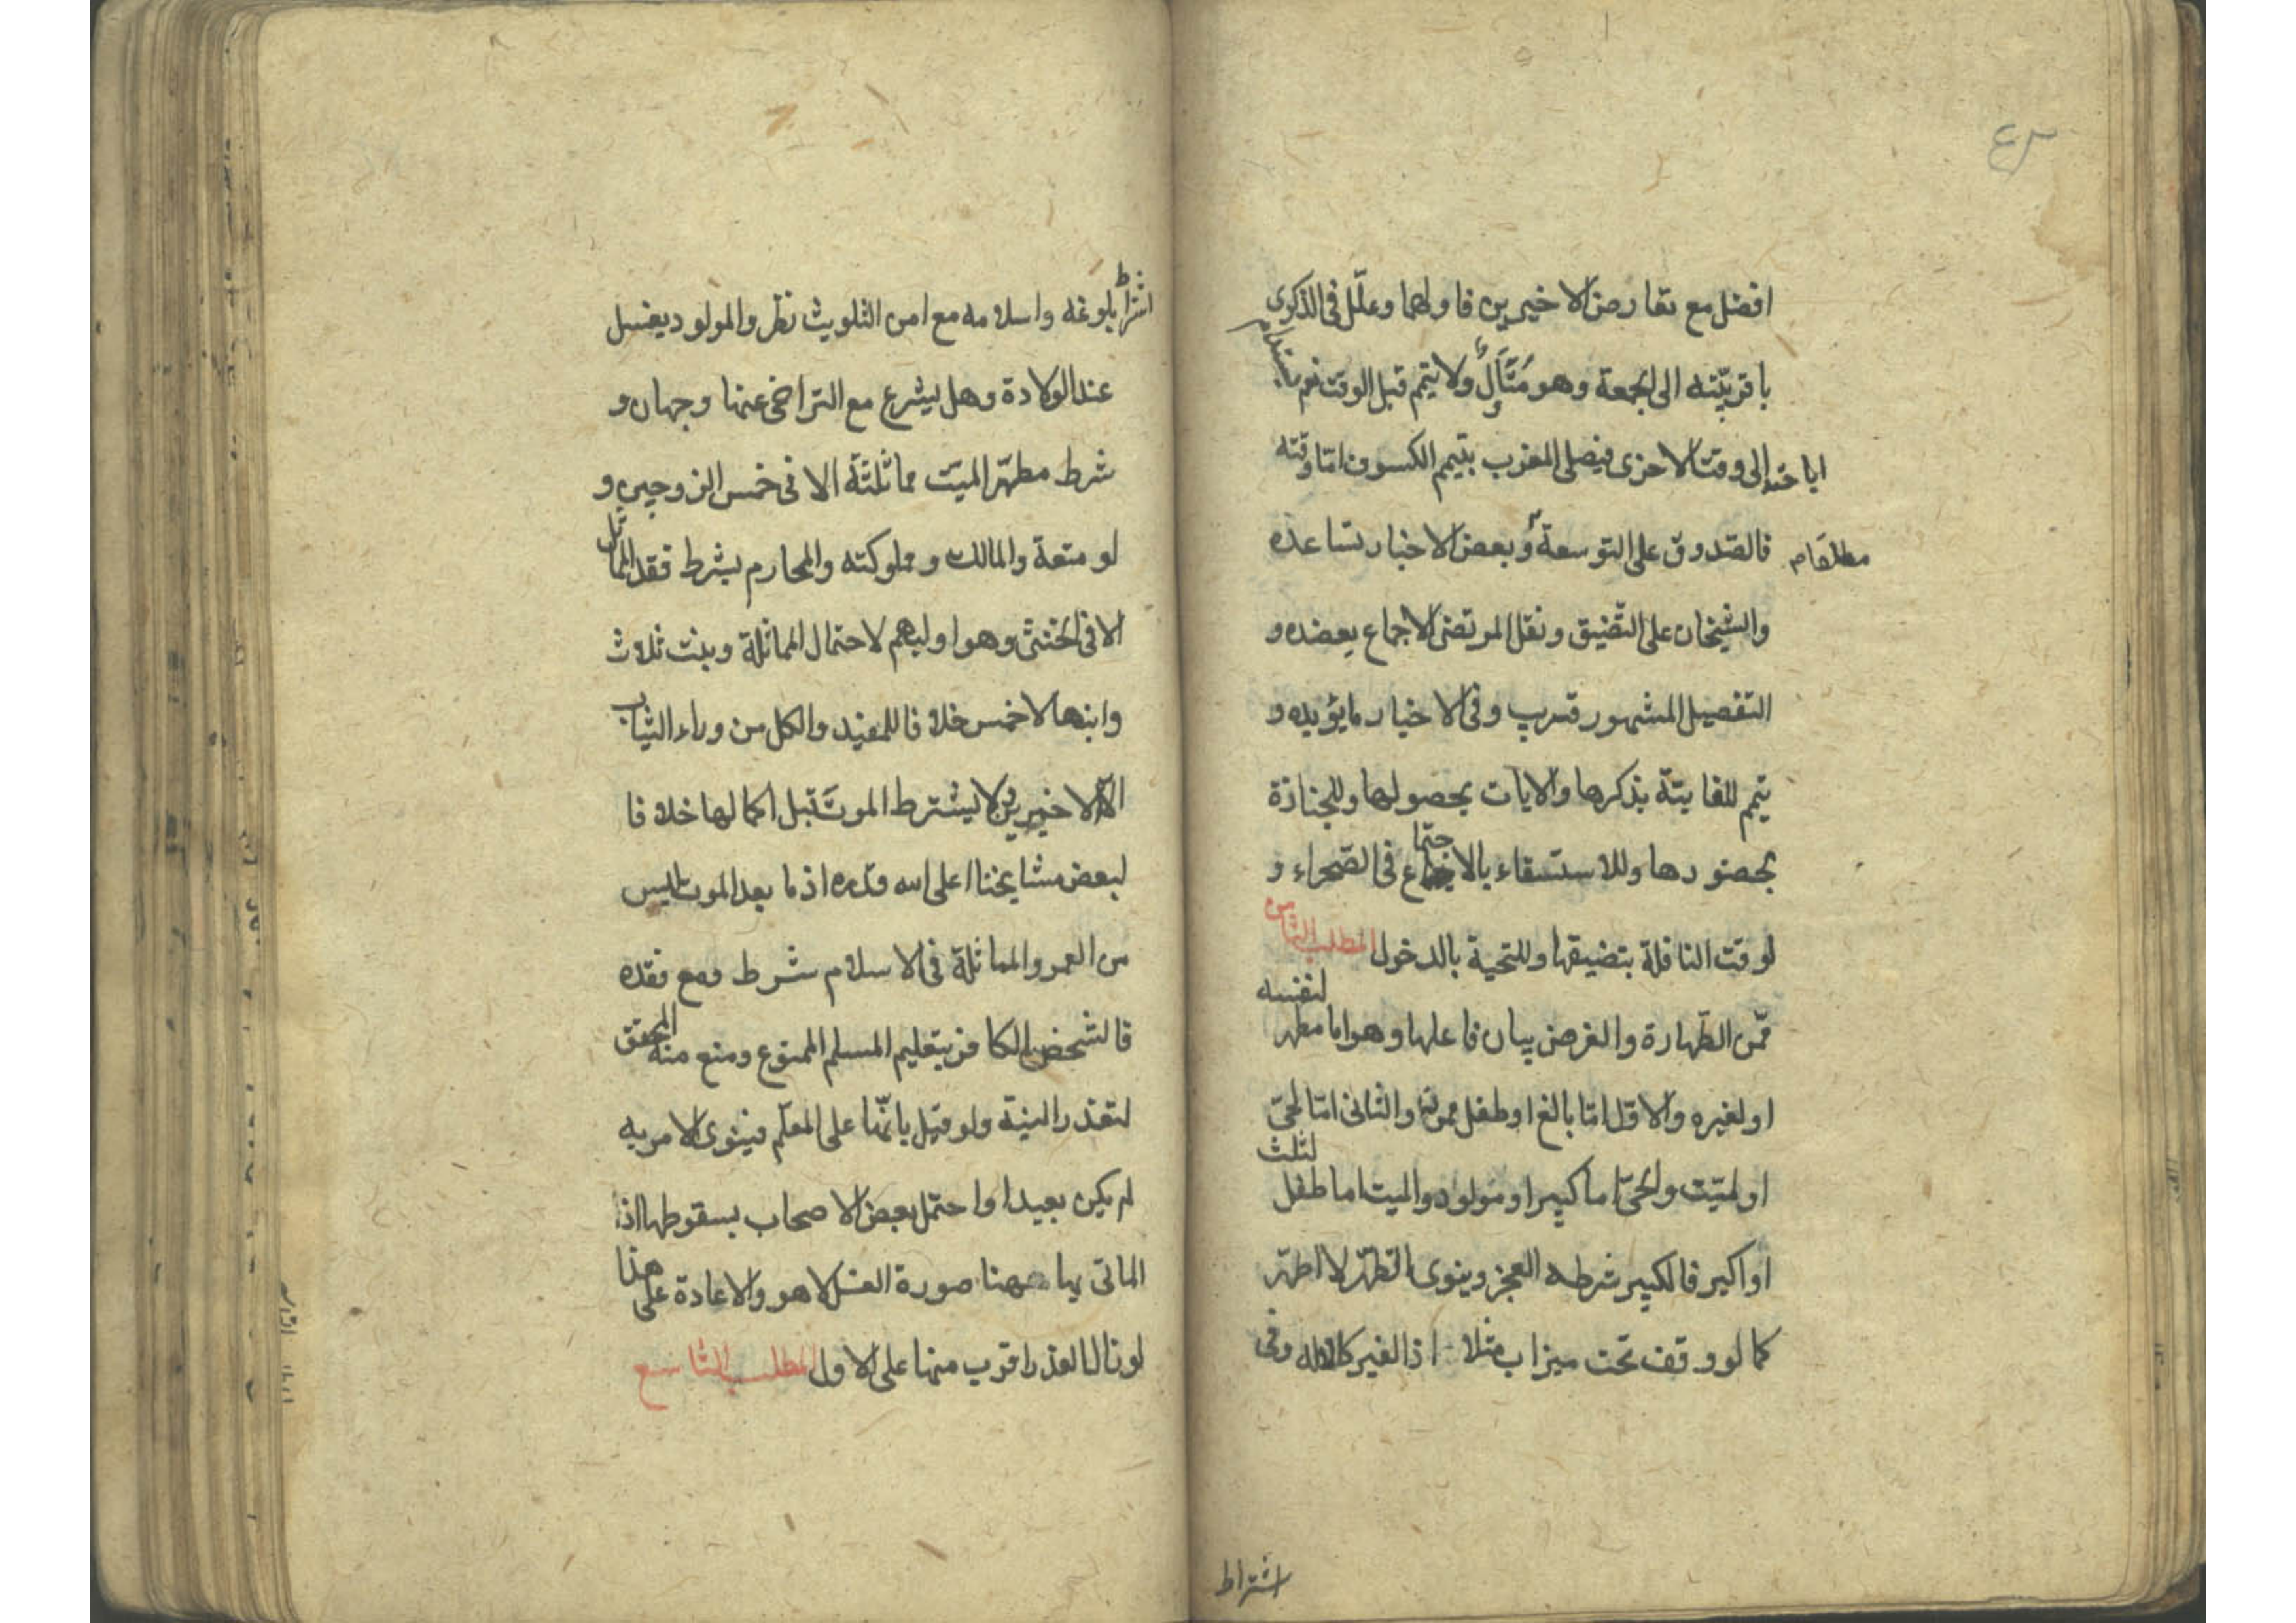 افضل مع تعارض الاخيرين فاولهما وعلّل فى الذكرى
باقربيّته الى الجمعة وهو مُتَأَوِّل ولا يتيمم قبل الوقت نعم
اباحته الى وقت الاخرى فيصلى المغرب بتيمم الكسوف امّا وقته
مطلقا م
فالصّدوق على التوسعة وبعض الاخبار تساعده
والشيخان على التّضيق ونقل المرتضى الاجماع يعضده و
التفصيل المشهور قريب وفى الاخبار ما يؤيده و
يتيمم للفايتة بذكرها والايات بحصولها وللجنازة
بحضورها وللاستسقاء بالاجتماع فى الصّحراء و
لوقت النافلة بتضيقها وللتحية بالدخول المطلب الثامن
فمّن الطّهارة والغرض بيان فاعلها وهو اما مطهر لنفسه
او لغيره والاوّل امّا بالغ او طفل ممرن والثانى امّا لحىّ
او لميّت والحىّ اما كبير او مولود والميت اما طفل لثلث
او اكبر فالكبير شرطه العجز وينوى التطهّر لا اطهّر
كما لو وقف تحت ميزاب مثلا اذ الغير كالالة وفى
اشتراط
اشتراط بلوغه واسلامه مع امن التلويث نظر والمولود يغسل
عند الولادة وهل يشرع مع التراخى عنها وجهان و
شرط مطهّر الميّت مماثلته الا فى خمس الزوجين و
لو متعة والمالك ومملوكته والمحارم بشرط فقد المماثل
الا فى الخنثى وهو اوليهم لاحتمال المماثلة وبنت ثلاث
وابنها لا خمس خلافا للمفيد والكل من وراء الثياب
الا الاخيرين ولا يشترط الموت قبل اكمالها خلافا
لبعض مشايخنا اعلى الله قدره اذ ما بعد الموت ليس
من العمر والمماثلة فى الاسلام شرط ومع فقده
فالشخص الكافر بتعليم المسلم الممنوع ومنع منه المحقق
لتعذر النية ولو قيل بانّها على المعلّم فينوى الامر به
لم يكن بعيدا واحتمل بعض الاصحاب بسقوطها اذ
الماتى بها ههنا صورة الغسل لا هو والاعادة على هذا
لو زال العذر اقرب منها على الاول المطلب التاسع